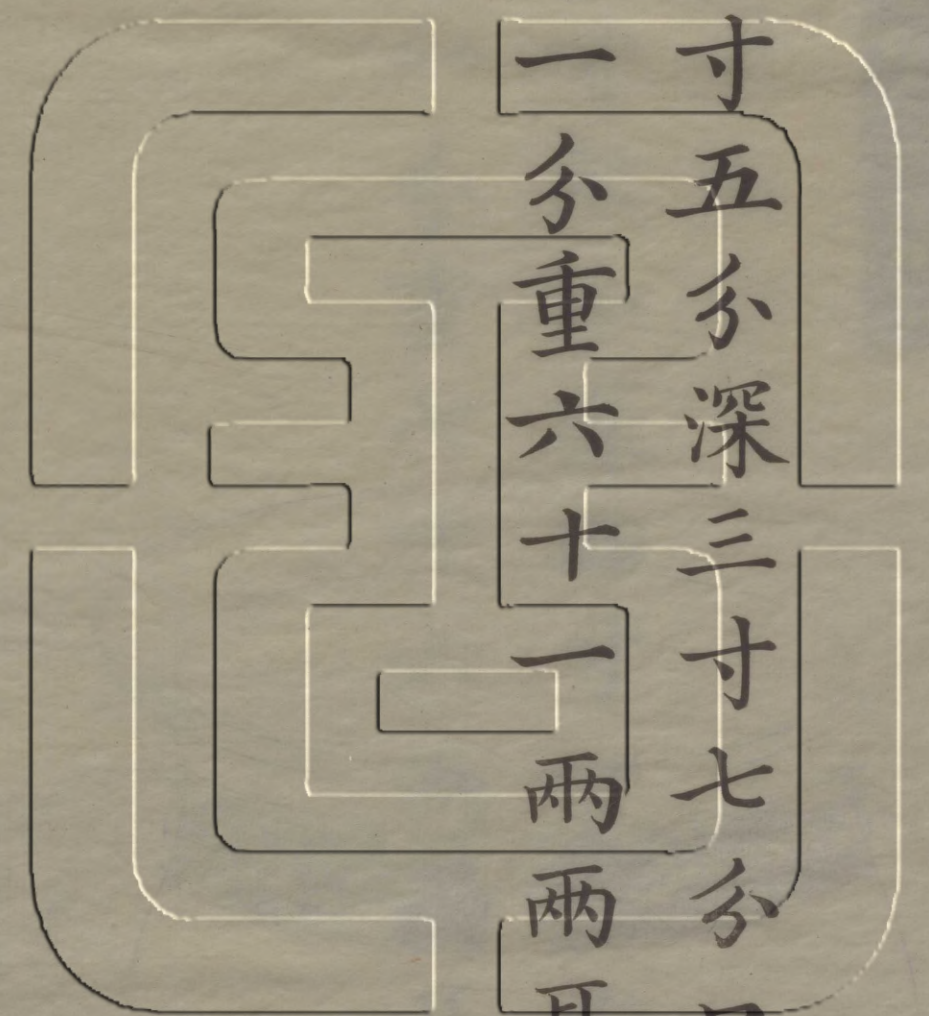 寸五分深三寸七分
一分重六十一兩兩